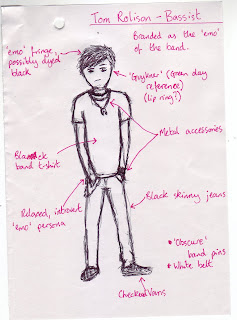 Tom Rolison - Bassist
'emo' fringe,
possibly dyed
black
Branded as the 'emo'
of the band.
(Green day
reference)
(lip ring?)
Metal accessories
band t-shirt
Relaxed, introvert
'emo' persona
Black skinny jeans
* 'Obscure'
band pins
* White belt
Checked Vans